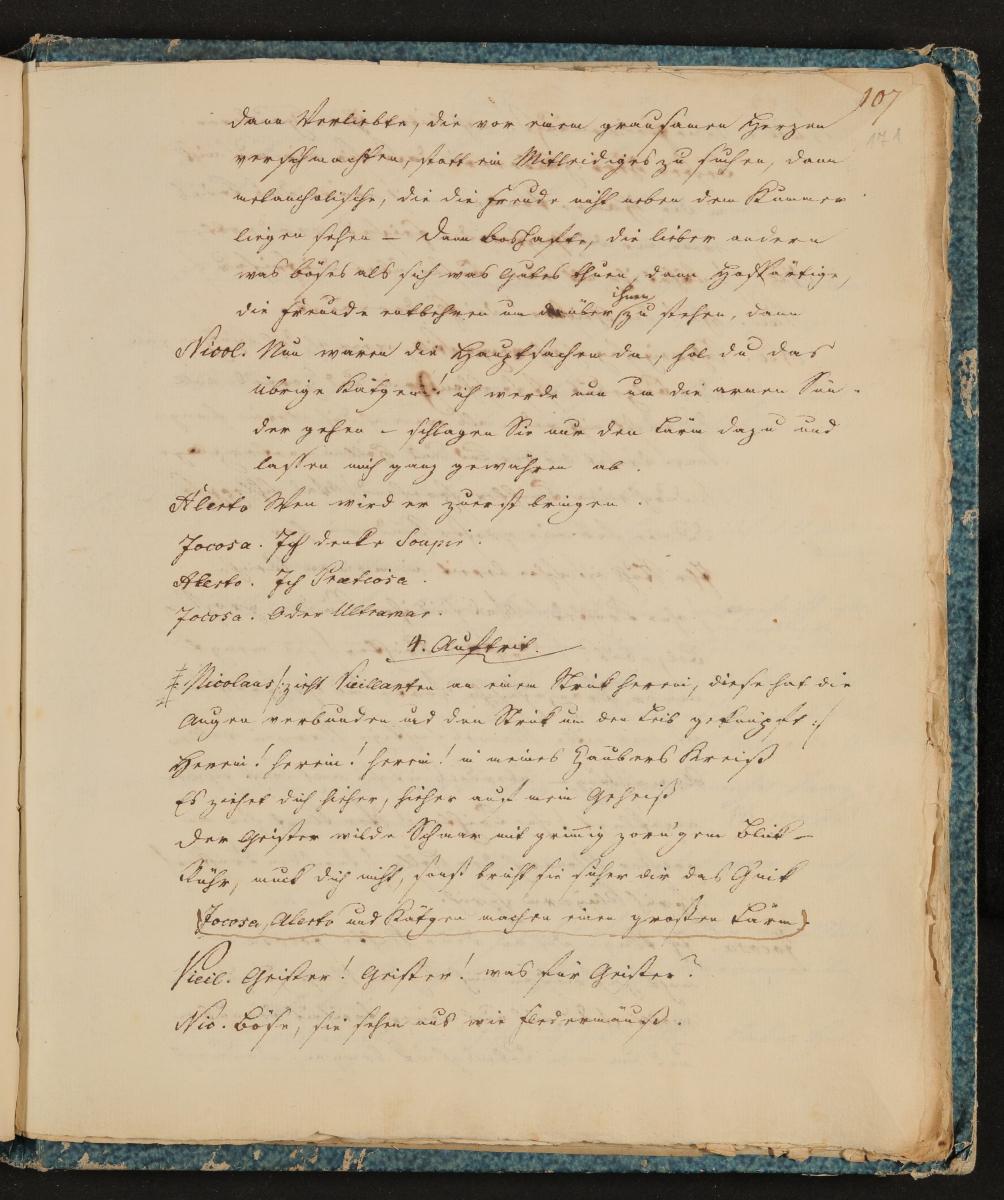 107
171
dann Verliebte, die vor einem grausamen Herzen
verschmachten, statt ein Mitleidiges zu suchen, dann
melancholische, die die Freude nicht neben dem Kummer
liegen sehen – dann boshafte, die lieber andern
was böses als sich was Gutes thuen, dann Hoffärtige,
die Freunde entbehren um über ihnen zu stehen, dann
Nicol. Nun wären die Hauptsachen da, hol du das
übrige Kätgen! ich werde nun um die armen Sün-
der gehen – schlagen Sie nur den Lärm dazu und
lassen mich ganz gewähren ab.
Alerto Wen wird er zuerst bringen.
Jocosa. Ich denke Soupir.
Alerto. Ich Pratiosa.
Jocosa. Oder Ultramar.
4. Auftrit.
Nicolaus /: zieht Vieillanten an einem Strik herein, diese hat die
Augen verbunden und den Strik um den Leib geknüpft :/
Herein! herein! herein! in meines Zaubers Kreiß
Es ziehet dich hieher, hieher auf mein Geheiß
Der Geister wilde Schaar mit grimmig zorngem Blik –
Rühr, muck dich nicht, sonst bricht sie sicher dir das Gnik
(Jocosa, Alerto und Kätgen machen einen grossen Lärm)
Vieil. Geister! Geister! was für Geister?
Nic. Böse, sie sehen aus wie Fledermäuß.